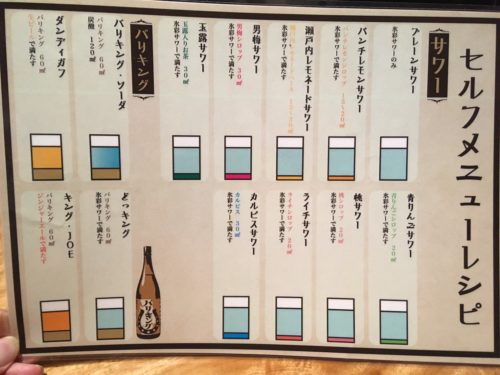 セルフメニューレシピ
サワー
プレーンサワー
氷彩サワーのみ
パンチレモンサワー
パンチレモンシロップ 15〜20㎖
氷彩サワーで満たす
瀬戸内レモネードサワー
氷彩サワーで満たす
男梅サワー
男梅シロップ 30㎖
氷彩サワーで満たす
玉露サワー
玉露入りお茶 30㎖
氷彩サワーで満たす
バリキング
バリキング・ソーダ
バリキング 60㎖
炭酸 120㎖
ダンディガフ
バリキング 60㎖
生ビールで満たす
青りんごサワー
青りんごシロップ 20㎖
氷彩サワーで満たす
桃サワー
桃シロップ 20㎖
氷彩サワーで満たす
ライチサワー
ライチシロップ 20㎖
氷彩サワーで満たす
カルピスサワー
カルピス 30㎖
氷彩サワーで満たす
バリキング
どっキング
バリキング 60㎖
氷彩サワーで満たす
キング・JOE
バリキング 60㎖
ジンジャーエールで満たす